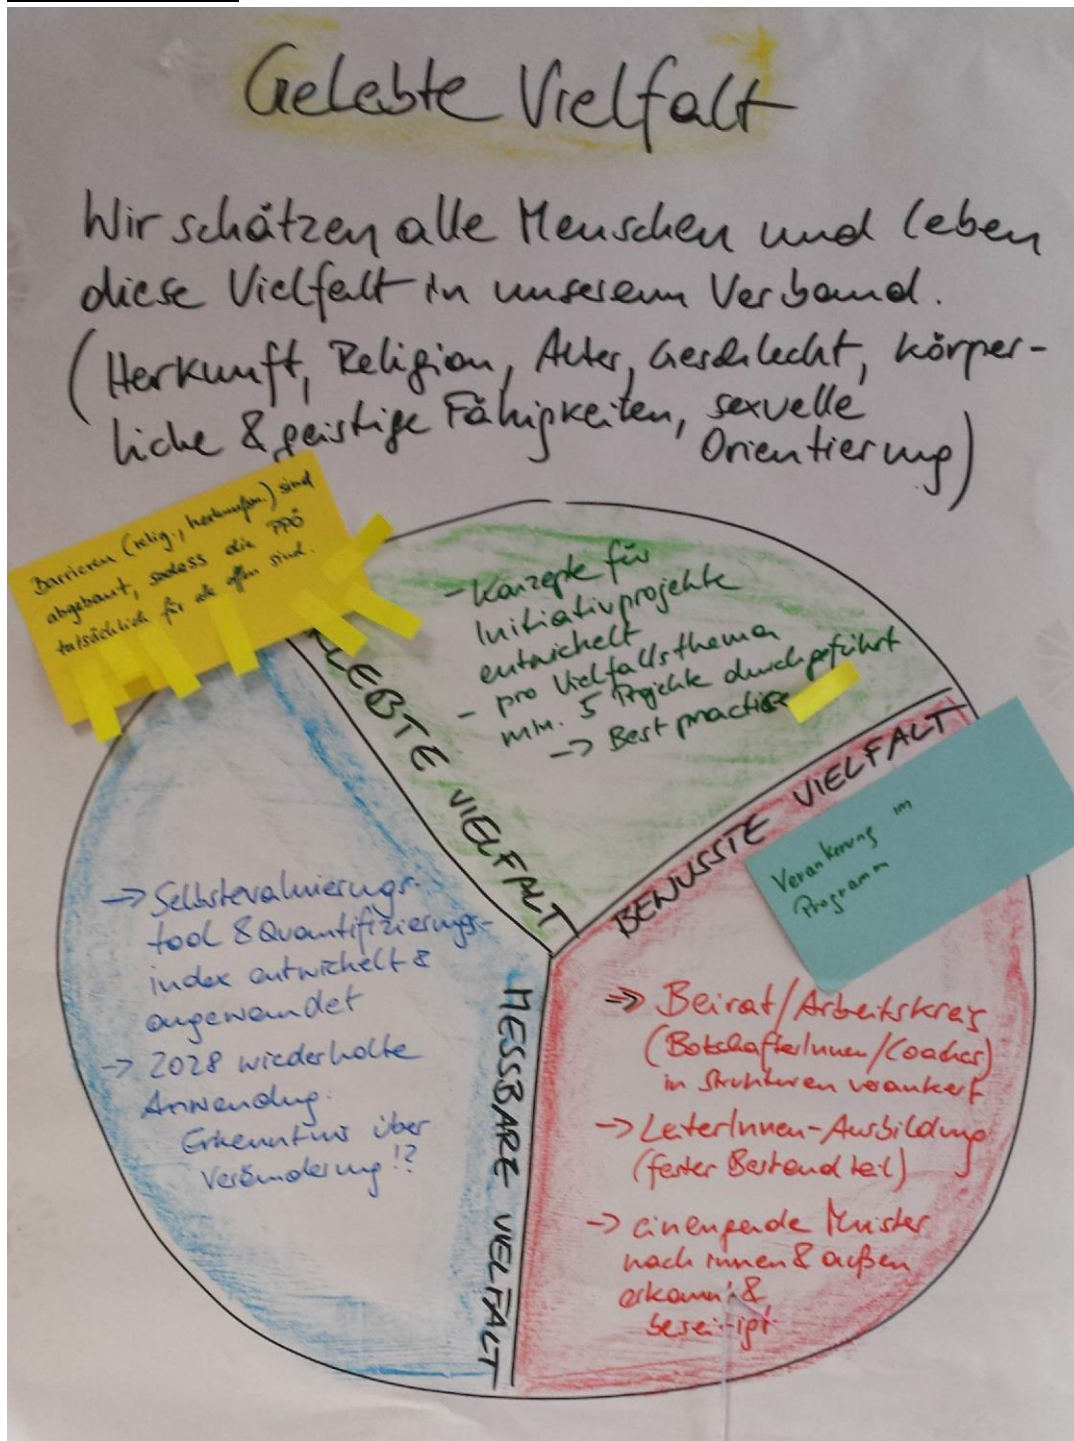 Gelebte Vielfalt
Wir schätzen alle Menschen und leben
diese Vielfalt in unserem Verband.
(Herkunft, Religion, Alter, Geschlecht, körper-
liche & geistige Fähigkeiten, sexuelle
Orientierung)
Barrieren (relig., herkunftsm.) sind
abgebaut, sodass die PPÖ
tatsächlich für alle offen sind.
- Konzepte für
Initiativprojekte
entwickelt
- pro Vielfaltsthema
min. 5 Projekte durchgeführt
-> Best practise
LEBTE VIELFALT
BEWUSSTE VIELFALT
Verankerung im
Programm
-> Selbstevaluierungs-
tool & Quantifizierungs-
index entwickelt &
angewendet
-> 2028 wiederholte
Anwendung.
Erkenntnis über
Veränderung!?
MESSBARE VIELFALT
=> Beirat/Arbeitskreis
(BotschafterInnen/Coaches)
in Strukturen verankert
-> LeiterInnen-Ausbildung
(fester Bestandteil)
-> einengende Muster
nach innen & außen
erkannt &
beseitigt